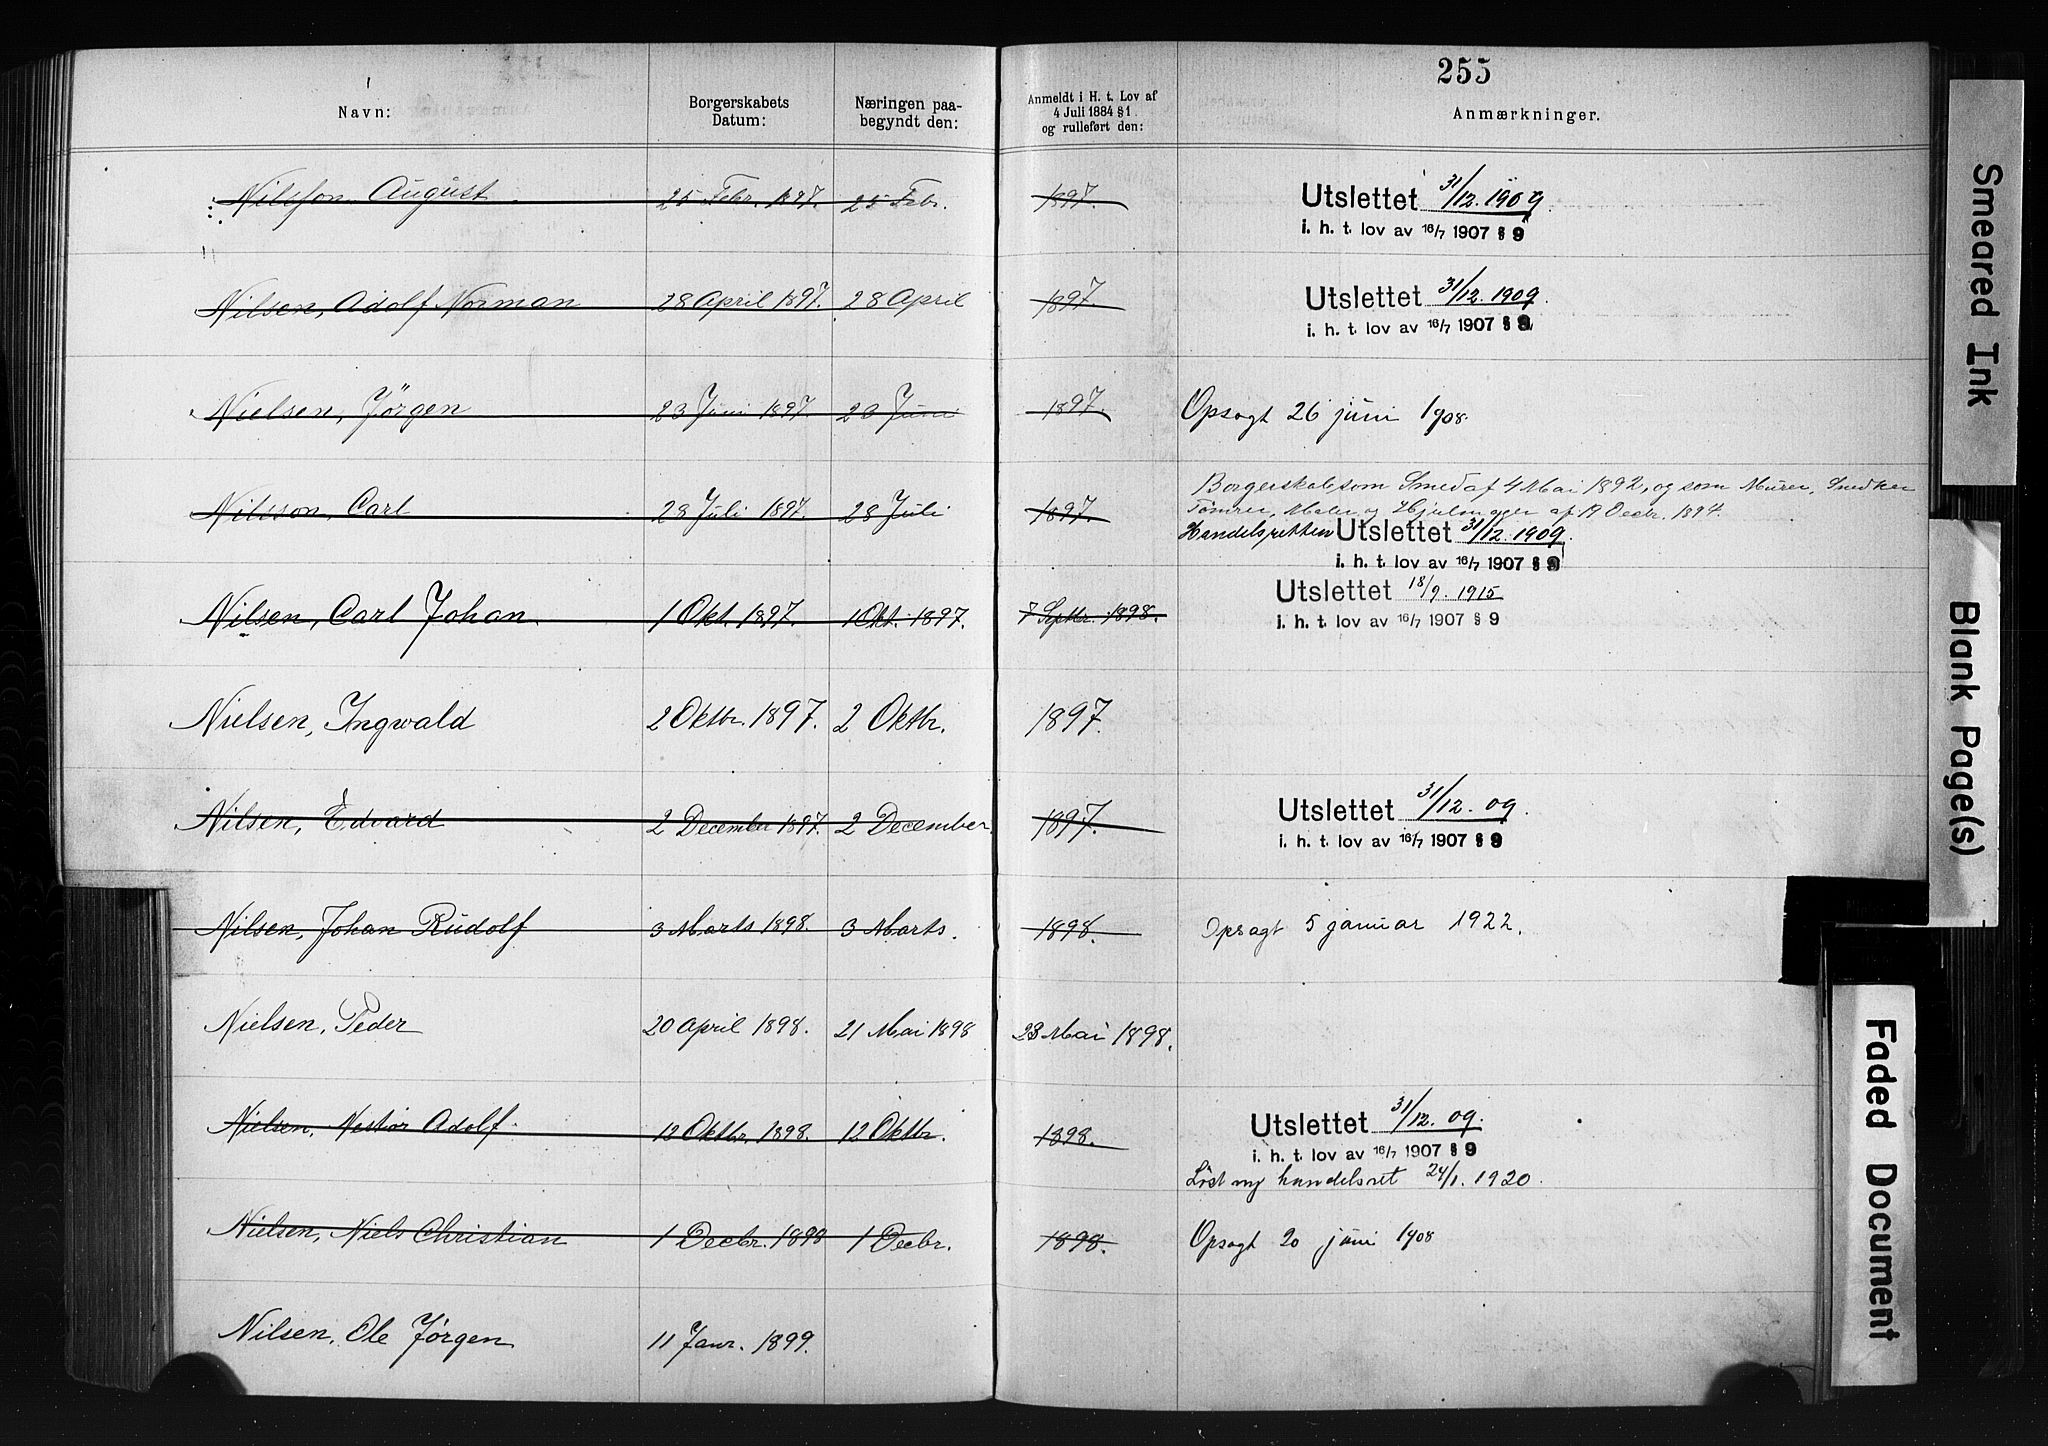 255
Navn: Borgerskabets Datum: Næringen paa-begyndt den: Anmeldt i H. t. Lov af 4 Juli 1884 § 1 og rulleført den: Anmærkninger.
Nilsson August 25 Febr. 1897. 25 Feb. 1897. Utslettet 31/12. 1909.
i. h. t. lov av 16/7 1907 § 9
Nilsen, Adolf Norman 28 April 1897. 28 April 1897. Utslettet 31/12. 1909.
i. h. t. lov av 16/7 1907 § 9
Nielsen, Jörgen 23 Juni 1897. 23 Juni 1897. Opsagt 26 juni 1908.
Borgerskab som Smed af 4 Mai 1892, og som Murer, Snedker
Nilsson, Carl 28 Juli 1897. 28 Juli 1897. Tömrer, Maler og af 19 Decbr. 1894.
Handelsretten Utslettet 31/12. 1909.
i. h. t. lov av 16/7 1907 § 9
Utslettet 18/9. 1915
Nilsen, Carl Johan. 1 Okt. 1897. 1 Okt. 1897. 7 Septbr. 1898. i. h. t. lov av 16/7 1907 § 9
Nielsen, Ingwald 2 Oktbr. 1897. 2 Oktbr. 1897.
Nilsen, Edvard 2 December 1897. 2 December. 1897. Utslettet 31/12. 09.
i. h. t. lov av 16/7 1907 § 9
Nilsen, Johan Rudolf 3 Marts 1898. 3 Marts. 1898. Opsagt 5 januar 1922.
Nielsen, Peder 20 April 1898. 21 Mai 1898 23 Mai 1898.
Nielsen, Nestor Adolf. 12 Oktbr. 1898. 12 Oktbr. 1898. Utslettet 31/12. 09.
i. h. t. lov av 16/7 1907 § 9
Löst ny handelsret 24/1. 1920.
Nielsen, Niels Christian 1 Decbr. 1898 1 Decbr. 1898. Opsagt 20 juni 1908
Nilsen, Ole Jörgen 11 Janr. 1899.
Smeared Ink
Blank Page(s)
Faded Document